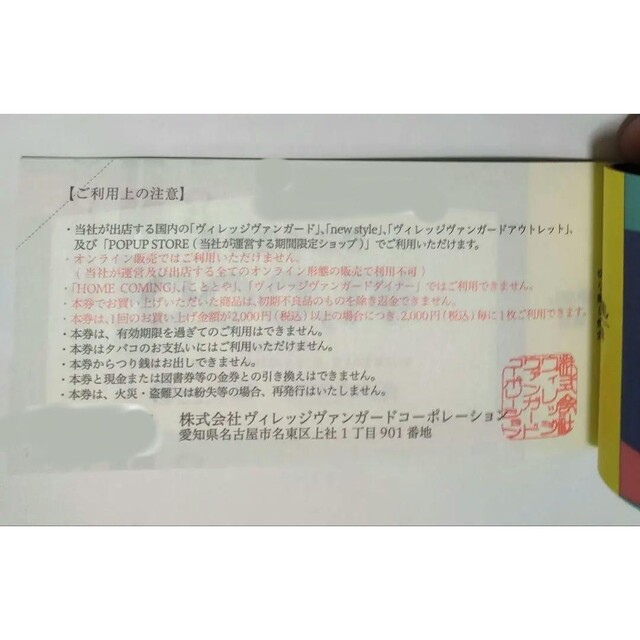 【ご利用上の注意】
・当社が出店する国内の「ヴィレッジヴァンガード」、「new style」、「ヴィレッジヴァンガードアウトレット」、
及び「POPUP STORE(当社が運営する期間限定ショップ)」でご利用いただけます。
・オンライン販売ではご利用いただけません。
(当社が運営及び出店する全てのオンライン形態の販売で利用不可)
・「HOME COMING」、「こととや」、「ヴィレッジヴァンガードダイナー」ではご利用できません。
・本券でお買い上げいただいた商品は、初期不良品のものを除き返金できません。
・本券は、1回のお買い上げ金額が2,000円(税込)以上の場合につき、2,000円(税込)毎に1枚ご利用できます。
・本券は、有効期限を過ぎてのご利用はできません。
・本券はタバコのお支払いにはご利用いただけません。
・本券からつり銭はお出しできません。
・本券と現金または図書券等の金券との引き換えはできません。
・本券は、火災・盗難又は紛失等の場合、再発行はいたしません。
株式会社ヴィレッジヴァンガードコーポレーション
愛知県名古屋市名東区上社1丁目901番地
株式会社
ヴィレッジ
ヴァンガード
コーポレーション